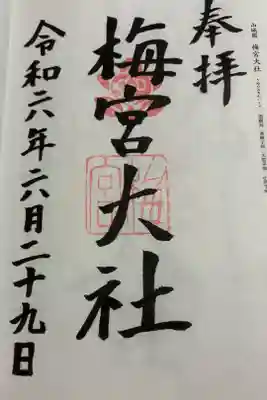 奉拝
梅宮大社
令和六年六月二十九日
梅宮大社